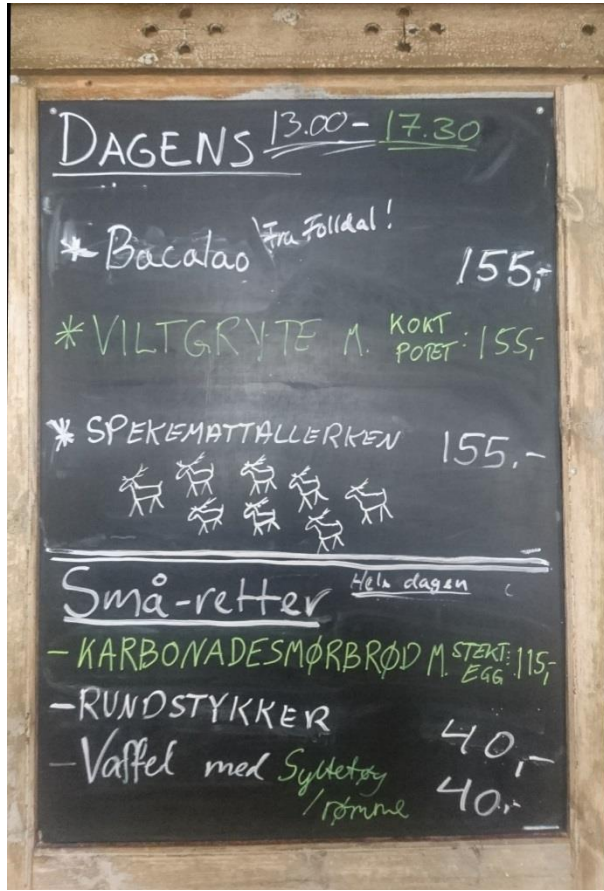 DAGENS 13.00 – 17.30
* Bacalao Fra Folldal! 155,-
* VILTGRYTE M. KOKT POTET: 155,-
* SPEKEMATTALLERKEN 155,-
Små-retter Hele dagen
- KARBONADESMØRBRØD M. STEKT EGG: 115,-
- RUNDSTYKKER 40,-
- Vaffel med Syltetøy /rømme 40,-